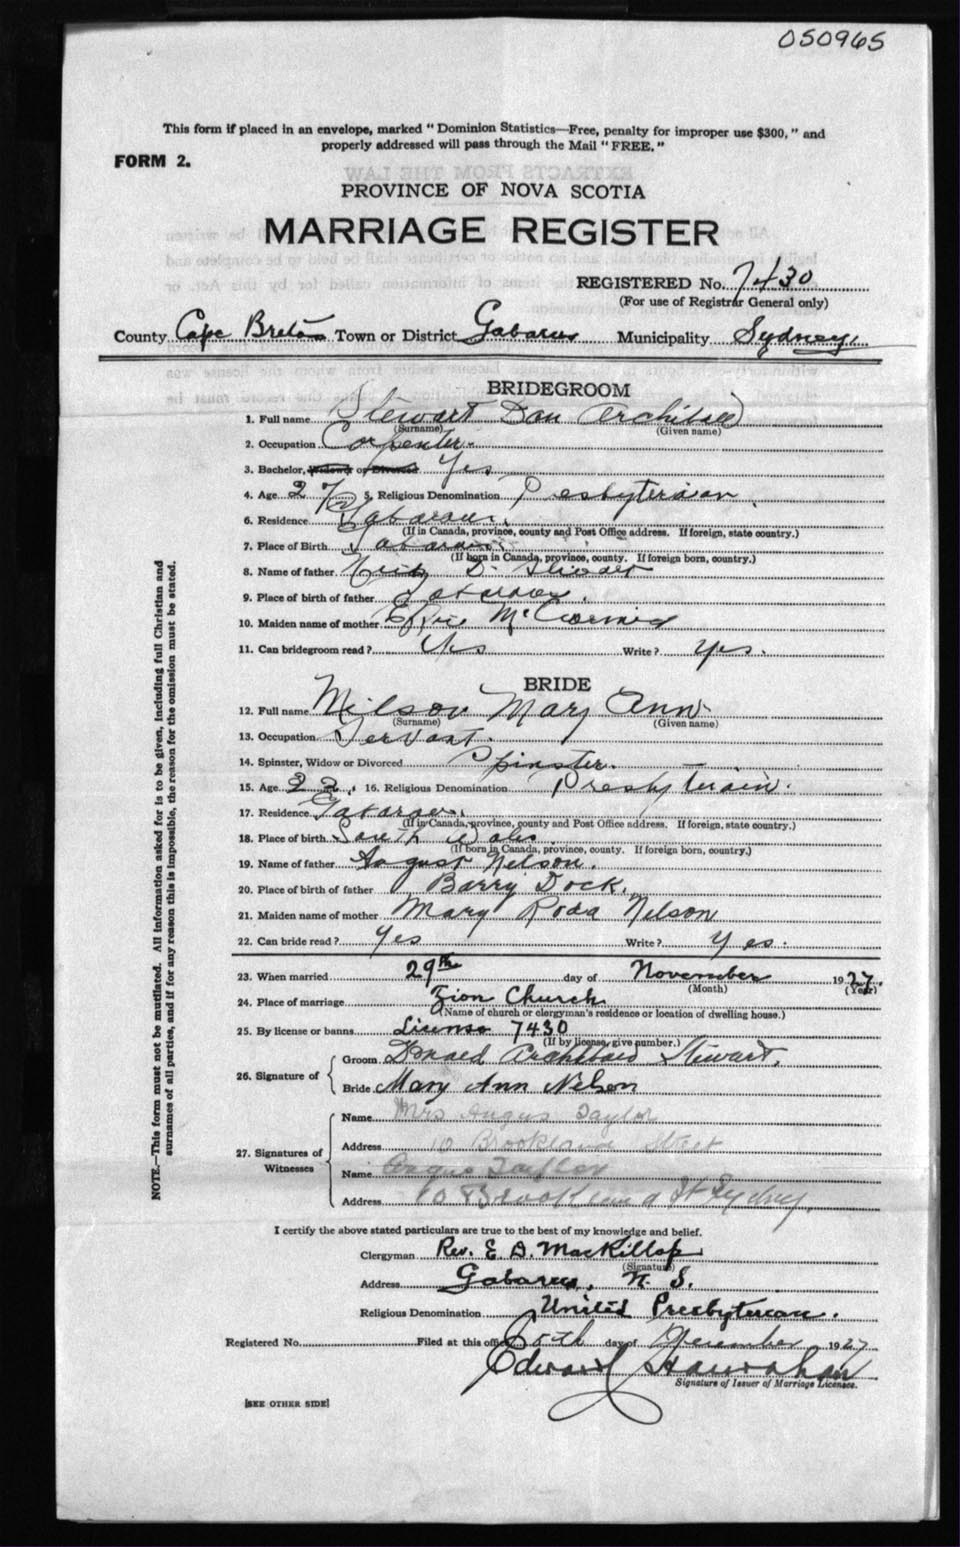 050965
This form if placed in an envelope, marked "Dominion Statistics—Free, penalty for improper use $300," and
properly addressed will pass through the Mail "FREE."
FORM 2.
EXTRACTS FROM THE LAW
PROVINCE OF NOVA SCOTIA
MARRIAGE REGISTER
REGISTERED No. 7430
(For use of Registrar General only)
County Cape Breton Town or District Gabarus Municipality Sydney
BRIDEGROOM
1. Full name Stewart Dan Archibald
(Surname) (Given name)
2. Occupation Carpenter
3. Bachelor, Widower or Divorced Yes
4. Age 27 5. Religious Denomination Presbyterian
6. Residence Gabarus
(If in Canada, province, county and Post Office address. If foreign, state country.)
7. Place of Birth Gabarus
(If born in Canada, province, county. If foreign born, country.)
8. Name of father D. Stewart
9. Place of birth of father Gabarus.
10. Maiden name of mother Effie McCormick
11. Can bridegroom read? Yes Write? yes.
BRIDE
12. Full name Nilson Mary Ann
(Surname) (Given name)
13. Occupation Servant.
14. Spinster, Widow or Divorced Spinster.
15. Age 22, 16. Religious Denomination Presbyterian.
17. Residence Gabarus.
(If in Canada, province, county and Post Office address. If foreign, state country.)
18. Place of birth South Wales
(If born in Canada, province, county. If foreign born, country.)
19. Name of father August Nelson.
20. Place of birth of father Barry Dock.
21. Maiden name of mother Mary Roda Nelson
22. Can bride read? Yes Write? Yes.
23. When married 29th day of November 1927.
(Month) (Year)
24. Place of marriage Zion Church
(Name of church or clergyman's residence or location of dwelling house.)
25. By license or banns License 7430
(If by license, give number.)
26. Signature of
Groom Donald Archibald Stewart,
Bride Mary Ann Nelson
27. Signatures of Witnesses
Name Mrs Angus Taylor
Address 10 Brookland Street
Name Angus Taylor
Address 10 Brookland St Sydney,
I certify the above stated particulars are true to the best of my knowledge and belief.
Clergyman Rev. E. D. MacKillop
(Signature)
Address Gabarus, N. S.
Religious Denomination United Presbyterian.
Registered No. Filed at this office 5th day of December 1927
Edward Hanrahan
Signature of Issuer of Marriage Licenses.
[SEE OTHER SIDE]
NOTE.—This form must not be mutilated. All information asked for is to be given, including full Christian and
surnames of all parties, and if for any reason this is impossible, the reason for the omission must be stated.